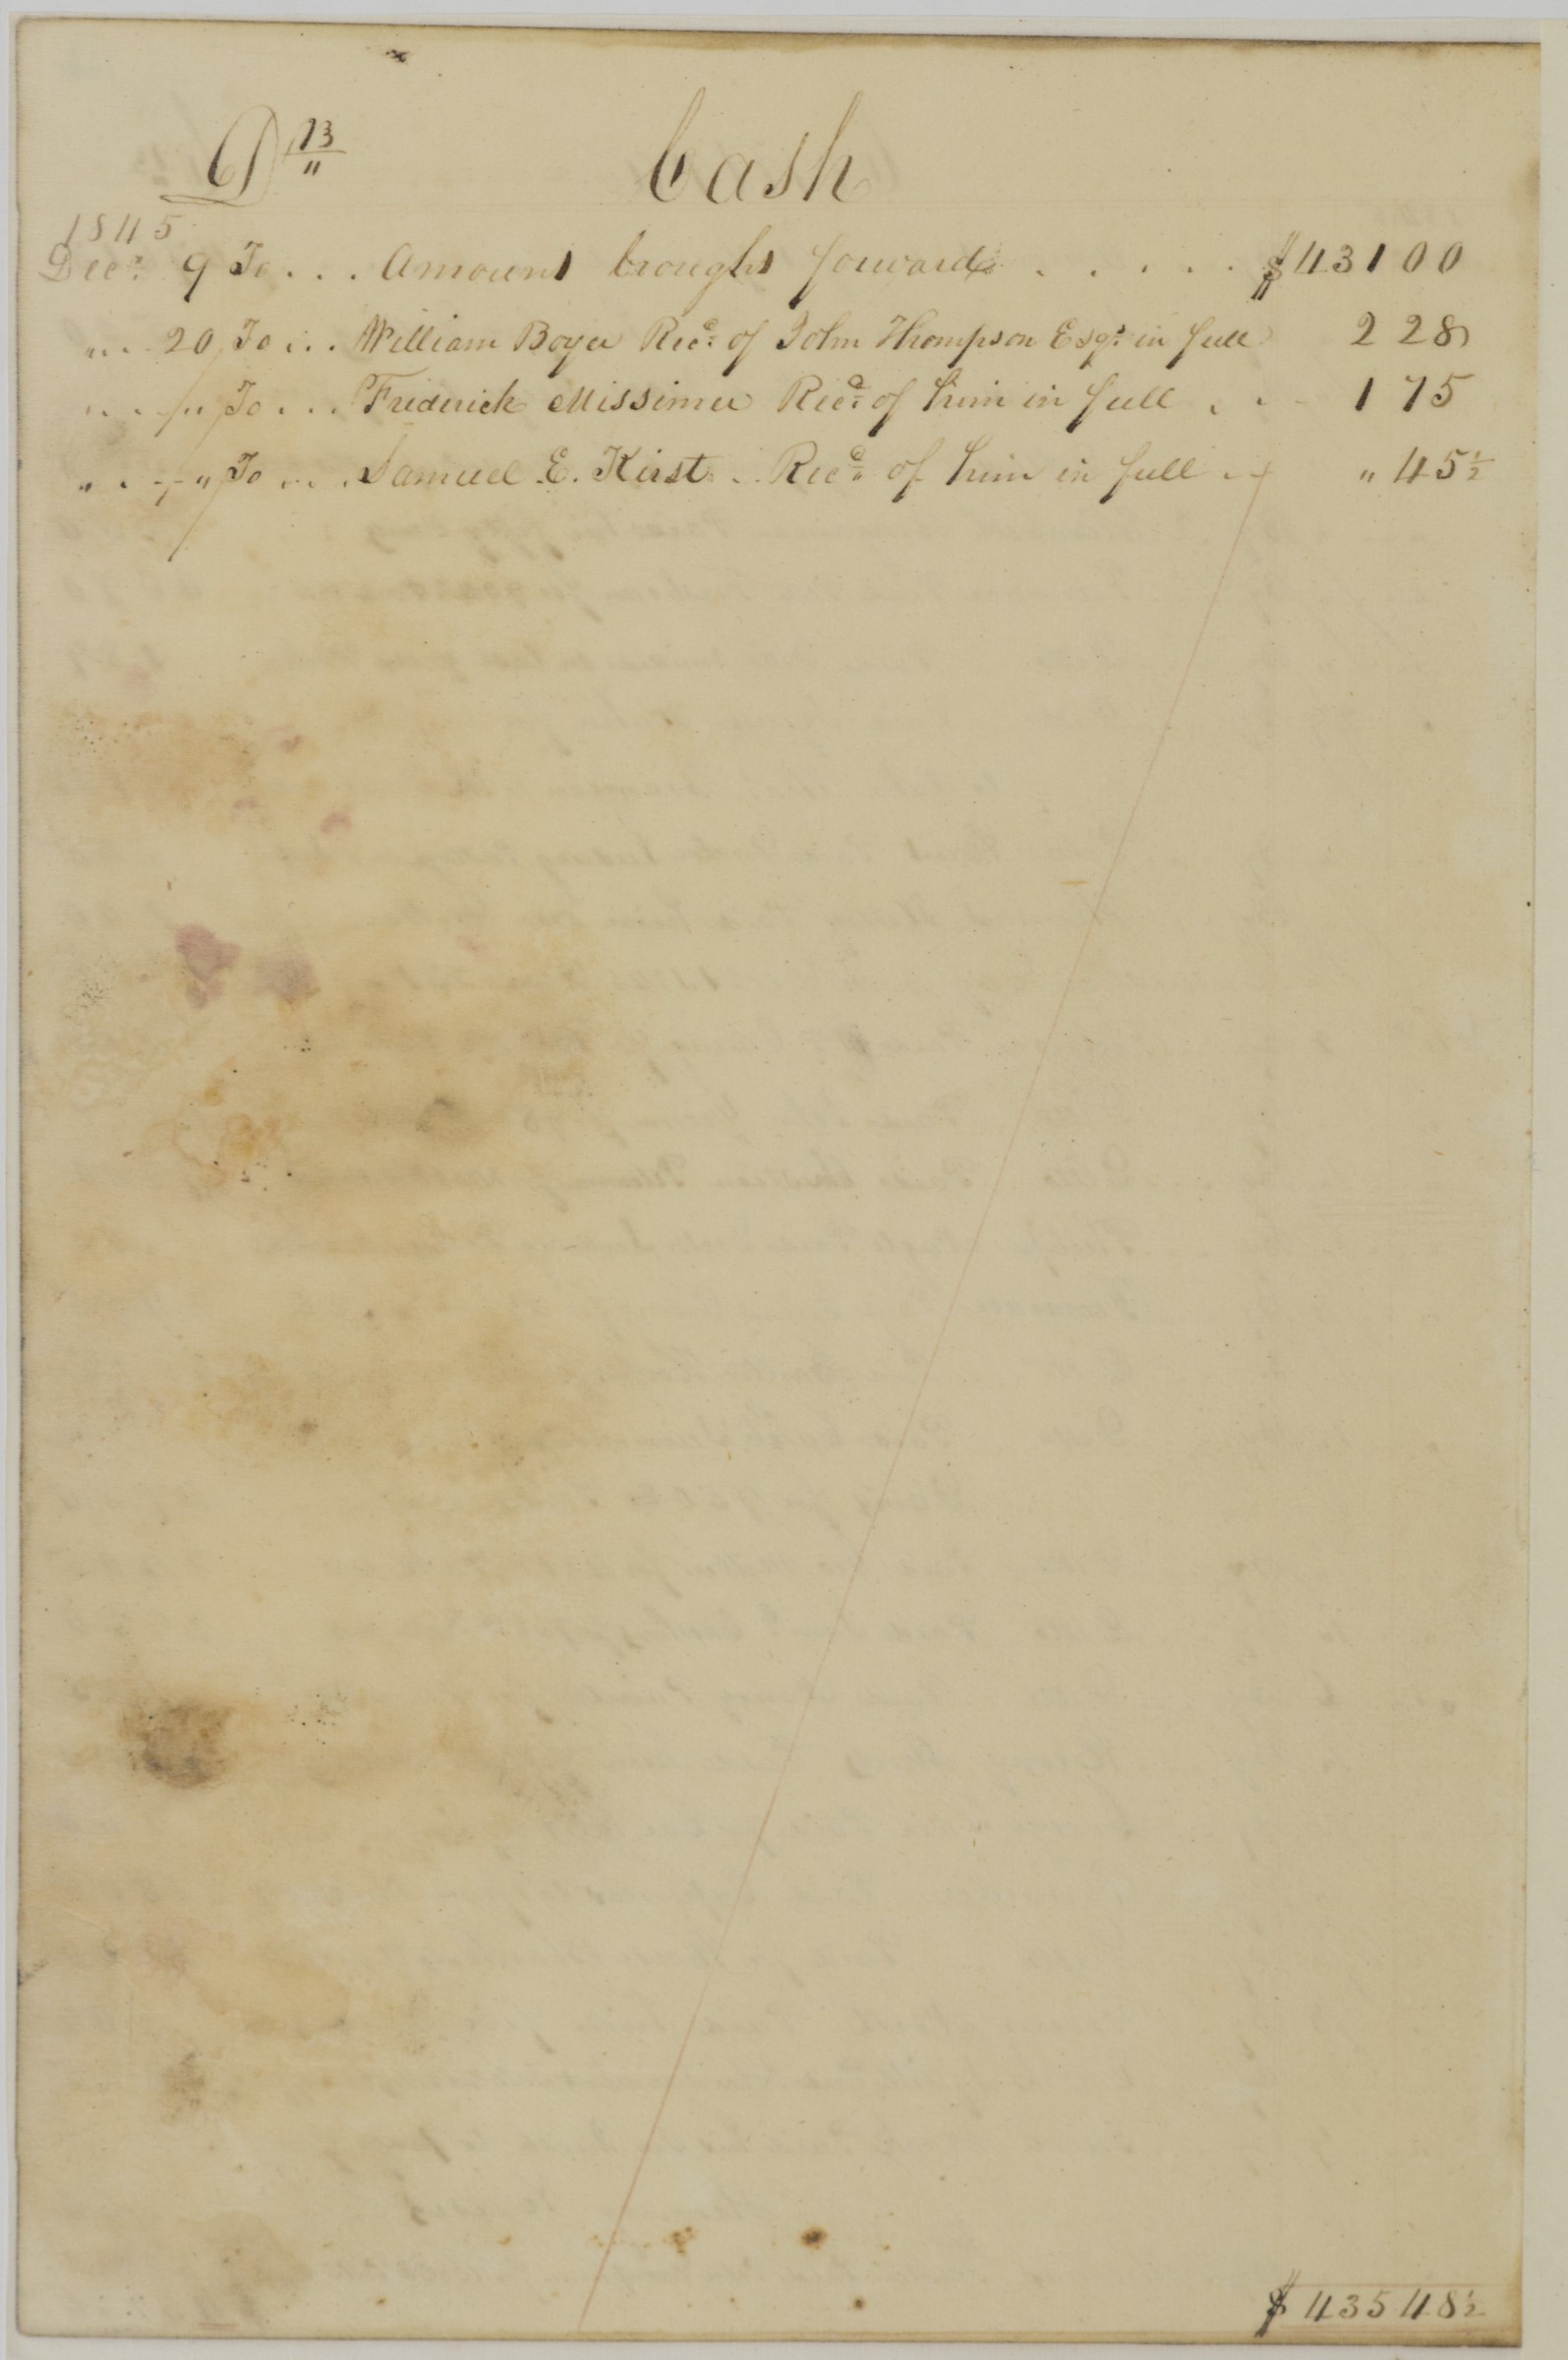 D 13 Cash
1845
Decr 9 To . . . Amount brought forward . . . . . $431 00
" . . 20 To . . . William Boyer Recd of John Thompson Esqr in full 2 28
" . . " To . . . Friderick Missimer Recd of him in full . . 1 75
" . . " To . . . Samuel E. Kirst . . Recd of him in full . . " 45½
$ 435 48½